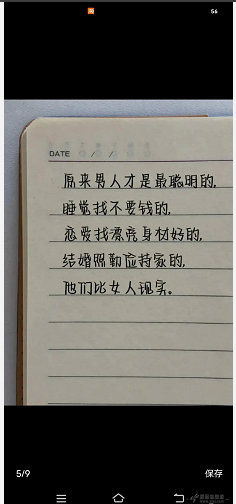 56
DATE / /
原来男人才是最聪明的,
睡觉找不要钱的,
恋爱找漂亮身材好的,
结婚照勤应持家的,
他们比女人现实。
5/9
保存